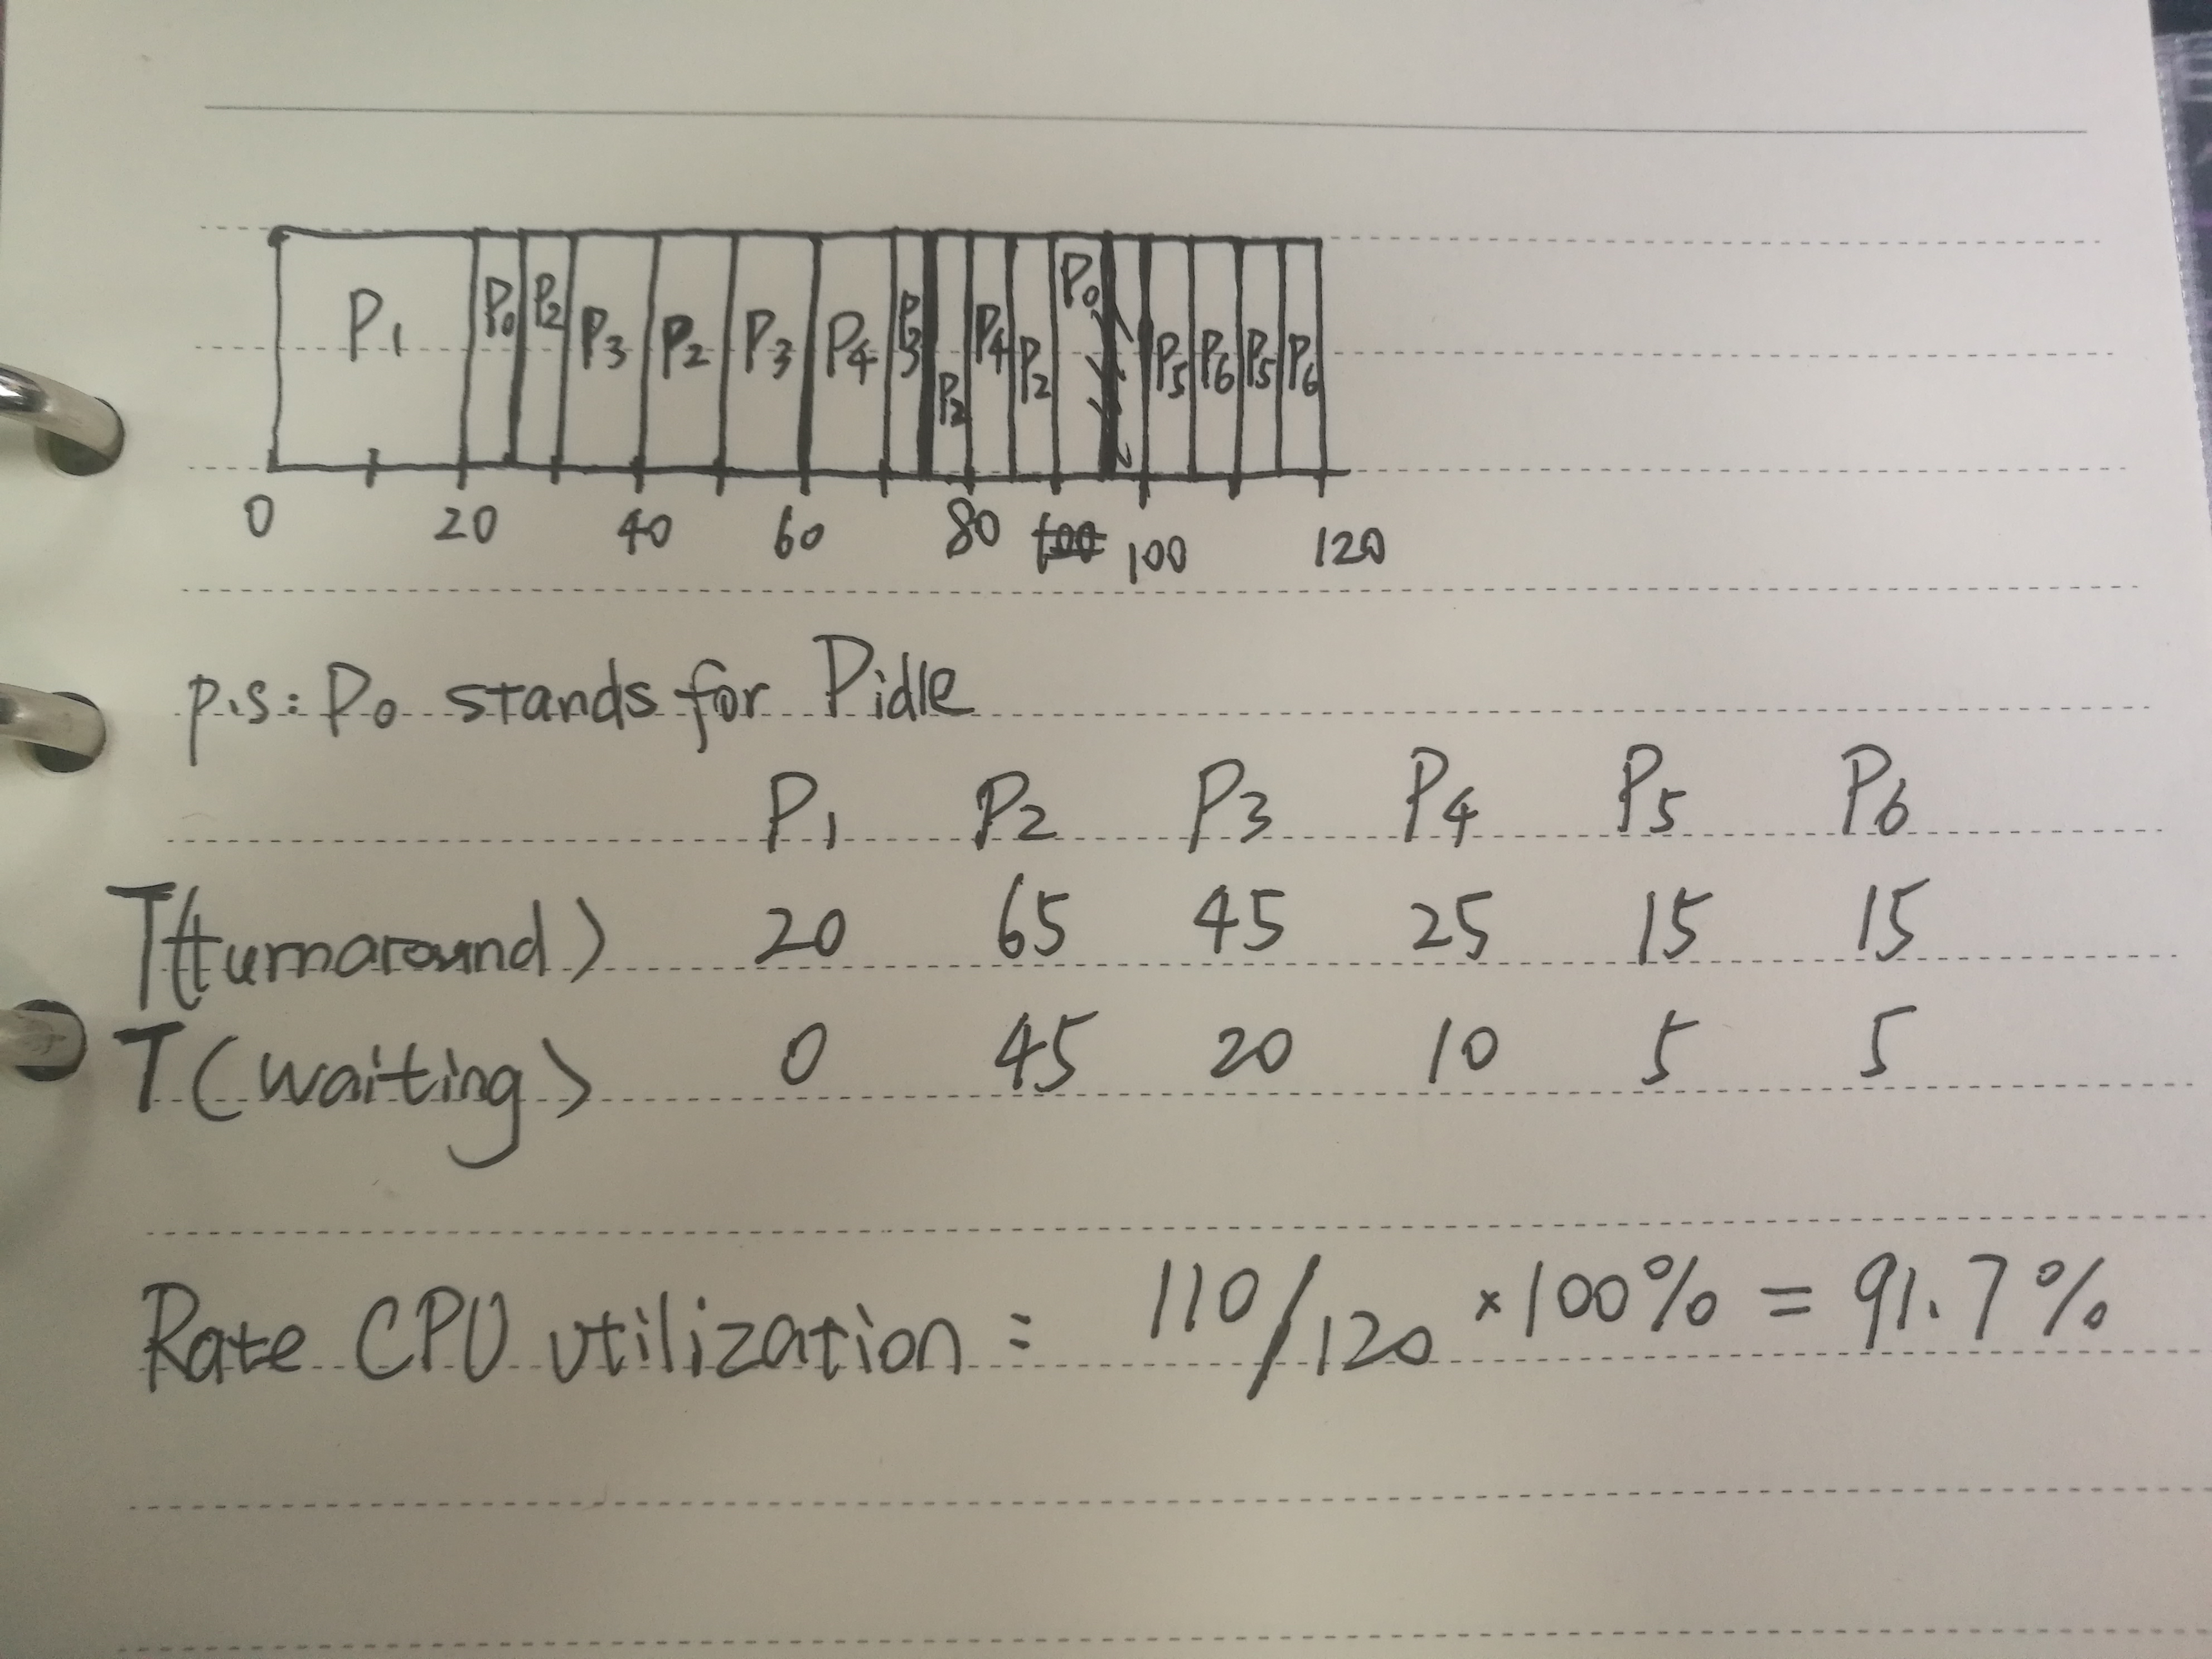 P1 P0 P2 P3 P2 P3 P4 P3 P2 P4 P2 P0 P5 P6 P5 P6
0 20 40 60 80 100 120
p.s: P0 stands for Pidle
P1 P2 P3 P4 P5 P6
T(turnaround) 20 65 45 25 15 15
T(waiting) 0 45 20 10 5 5
Rate CPU utilization = 110/120 ×100% = 91.7%